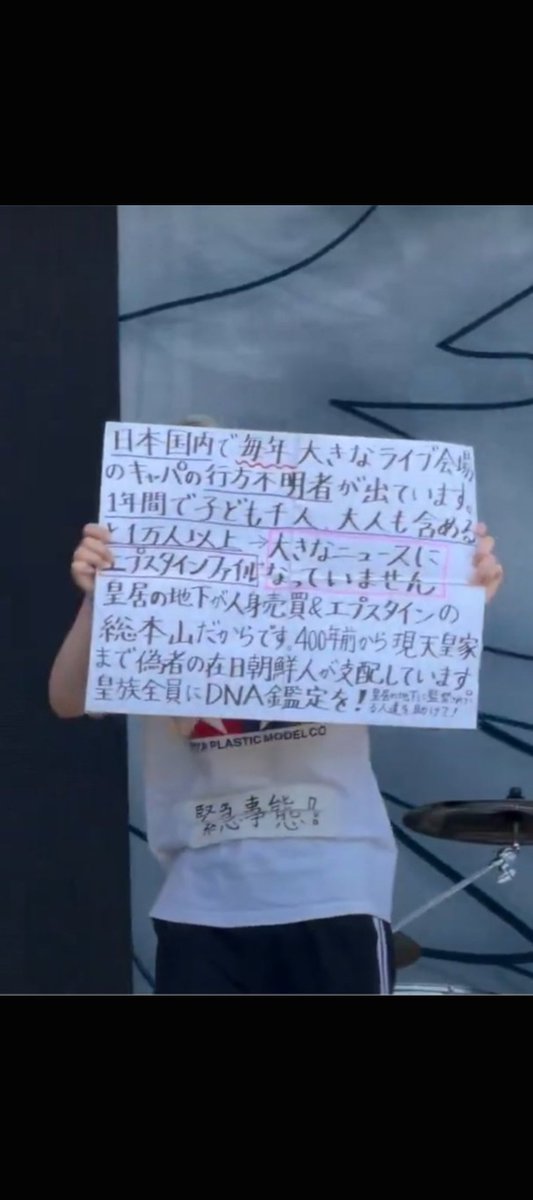 日本国内で毎年大きなライブ会場
のキャパの行方不明者が出ています。
1年間で子ども千人、大人も含める
と1万人以上→大きなニュースに
エプスタインファイル なっていません
皇居の地下が人身売買&エプスタインの
総本山だからです。400年前から現天皇家
まで偽者の在日朝鮮人が支配しています
皇族全員にDNA鑑定を!皇居の地下に監禁されて
る人達を助けて!
PLASTIC MODEL CO
緊急事態!!